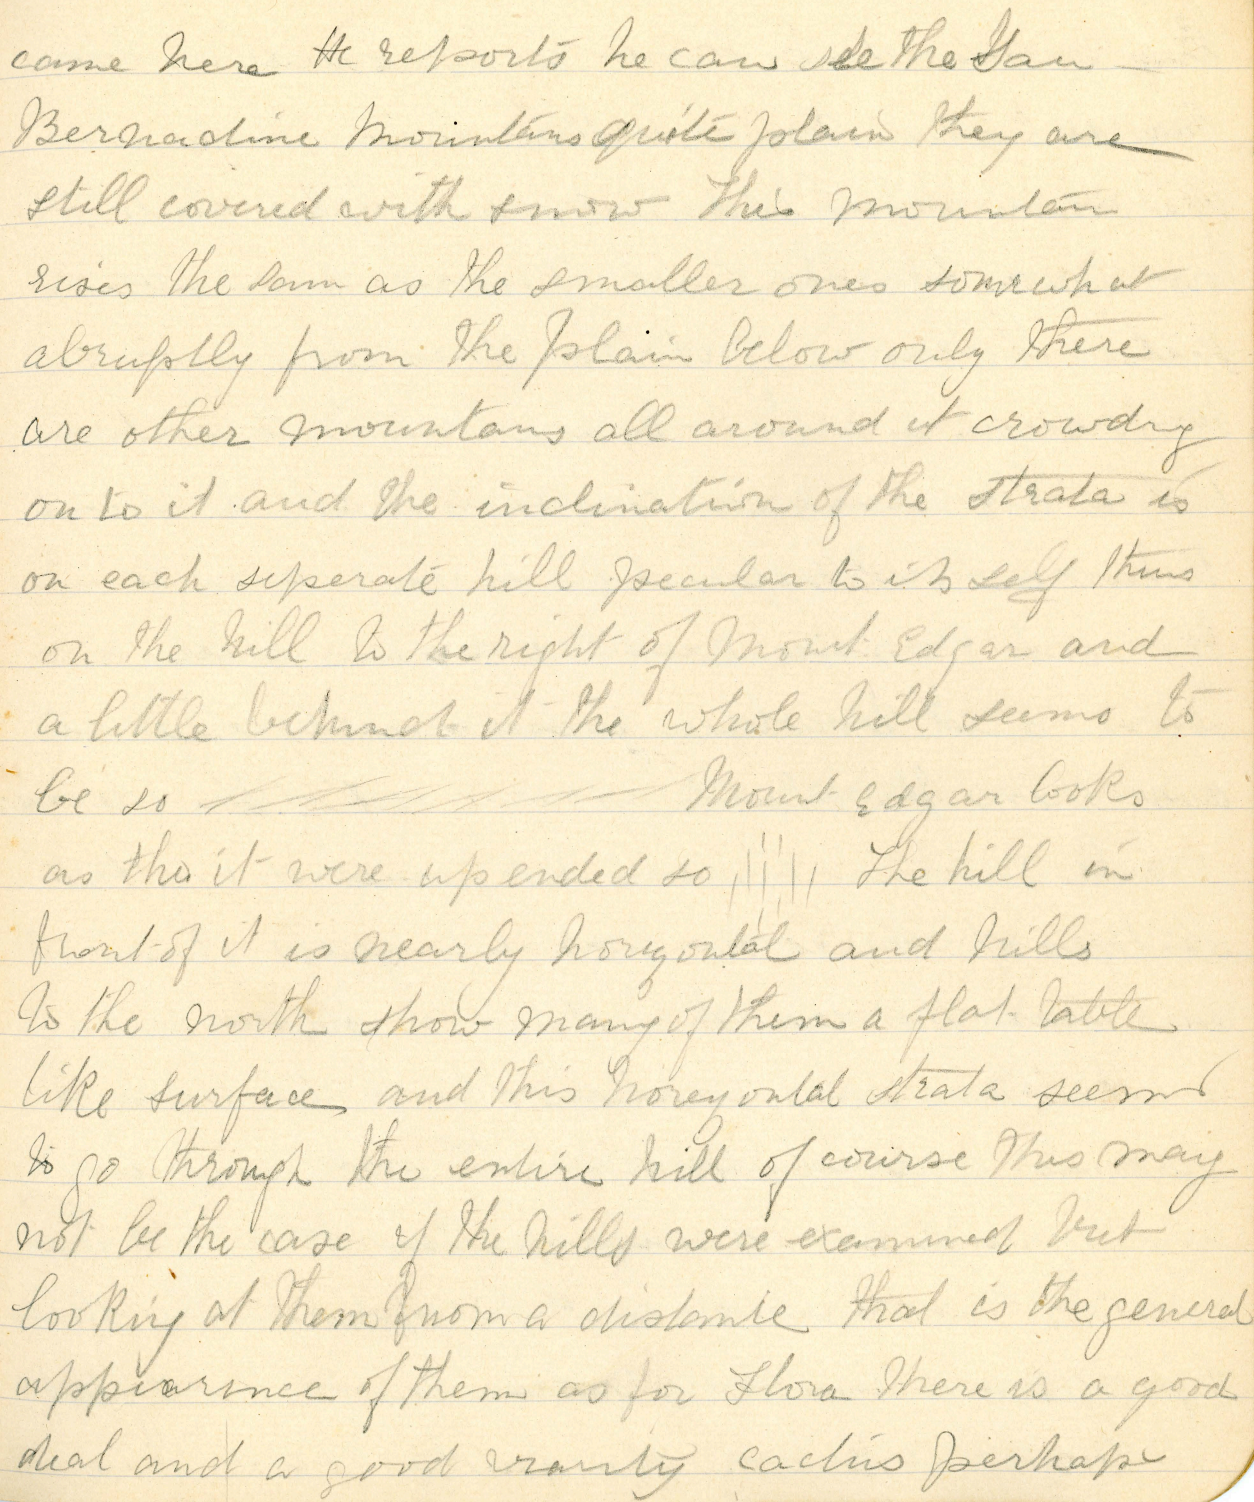 came here He reports he can see the San
Bernadine Mountains quite plain they are
still covered with snow This mountain
rises the sam as the smaller ones somewhat
abruptly from the plain below only there
are other mountans all around it crowdng
on to it and the inclination of the strata is
on each seperate hill pecular to its self thus
on the hill to the right of Mount Edgar and
a little behind it the whole hill seems to
be so Mount Edgar looks
as tho it were up ended so The hill in
front of it is nearly horizontal and hills
to the north show many of them a flat table
like surface and this horezontal strata seems
to go through the entire hill of course this may
not be the case if the hills were examined but
looking at them from a distance that is the general
appearence of them as for Flora there is a good
deal and a good cactus perhaps